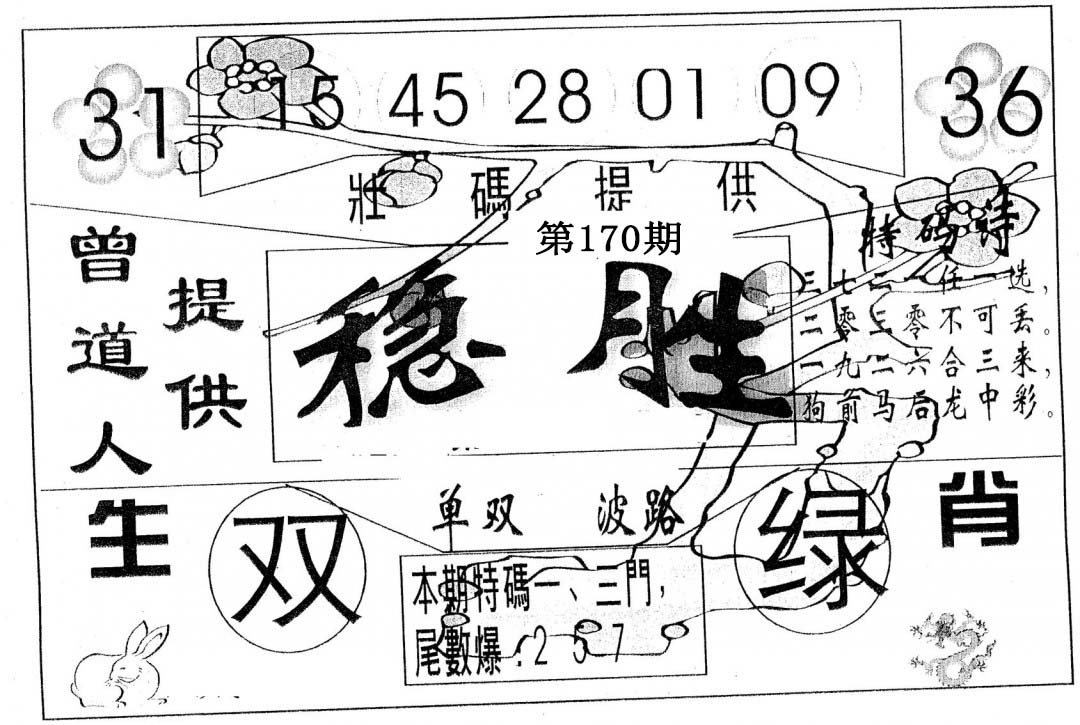 31 15 45 28 01 09 36
壯碼提供
第170期
曾道人
提供
稳胜
特码诗
三七二一任一选，
二零三零不可丢。
一九二六合三来，
狗前马后龙中彩。
生肖
单双 波路
双 绿
本期特碼一、三門，
尾數爆:2 5 7